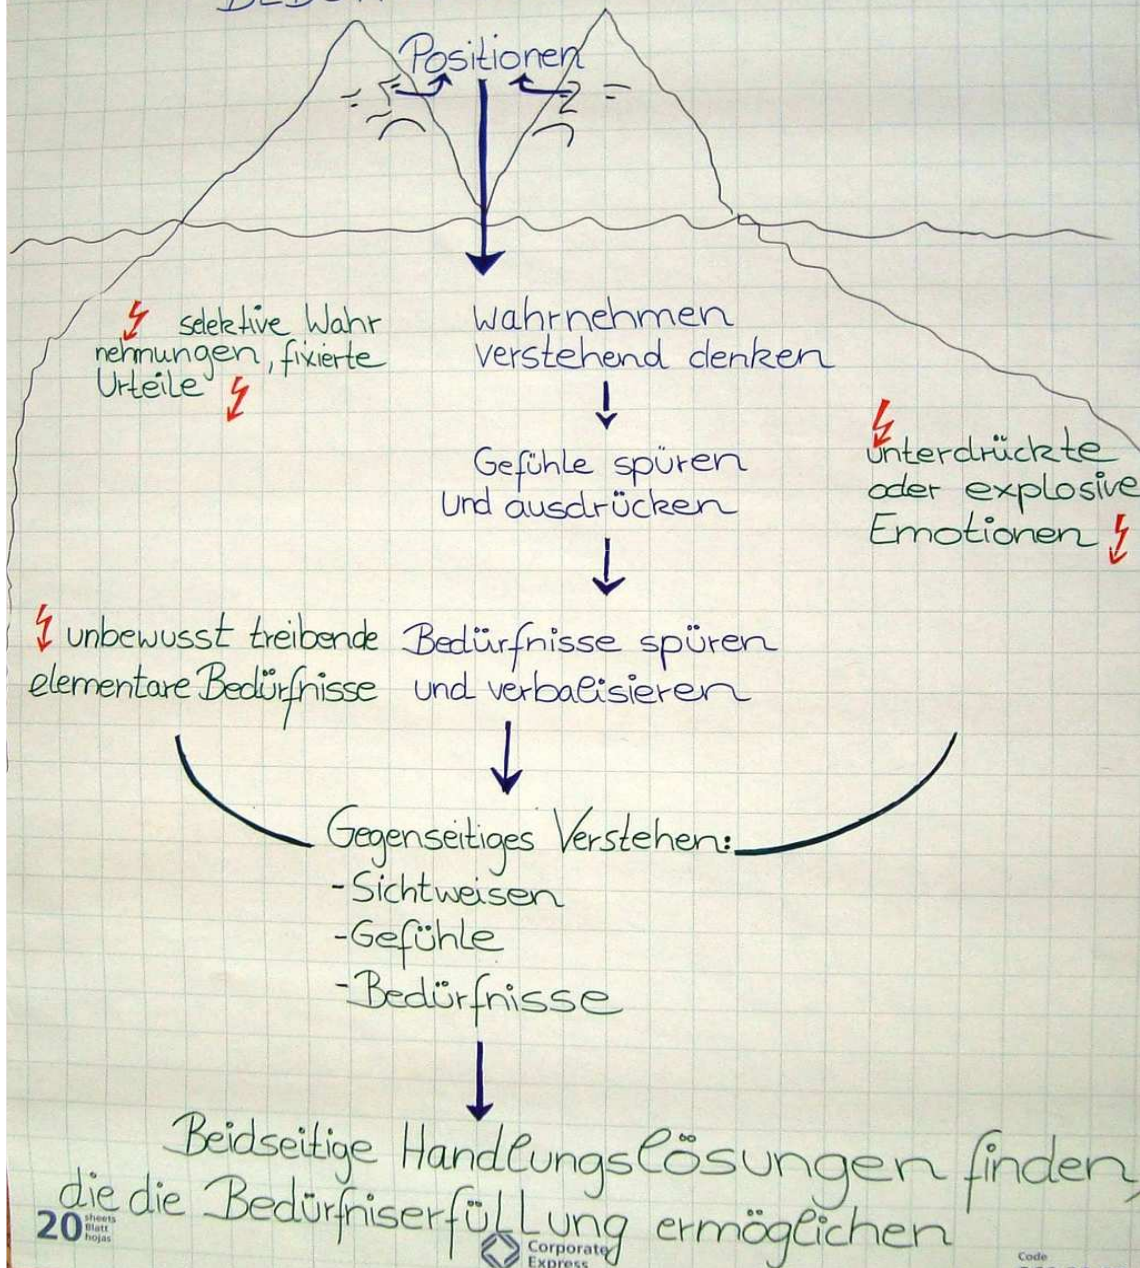 Positionen
selektive Wahr
nehmungen, fixierte
Urteile
wahrnehmen
verstehend denken
Gefühle spüren
und ausdrücken
unterdrückte
oder explosive
Emotionen
unbewusst treibende
elementare Bedürfnisse
Bedürfnisse spüren
und verbalisieren
Gegenseitiges Verstehen:
-Sichtweisen
-Gefühle
-Bedürfnisse
Beidseitige Handlungslösungen finden,
die die Bedürfniserfüllung ermöglichen
20 sheets
Blatt
hojas
Corporate
Express
Code